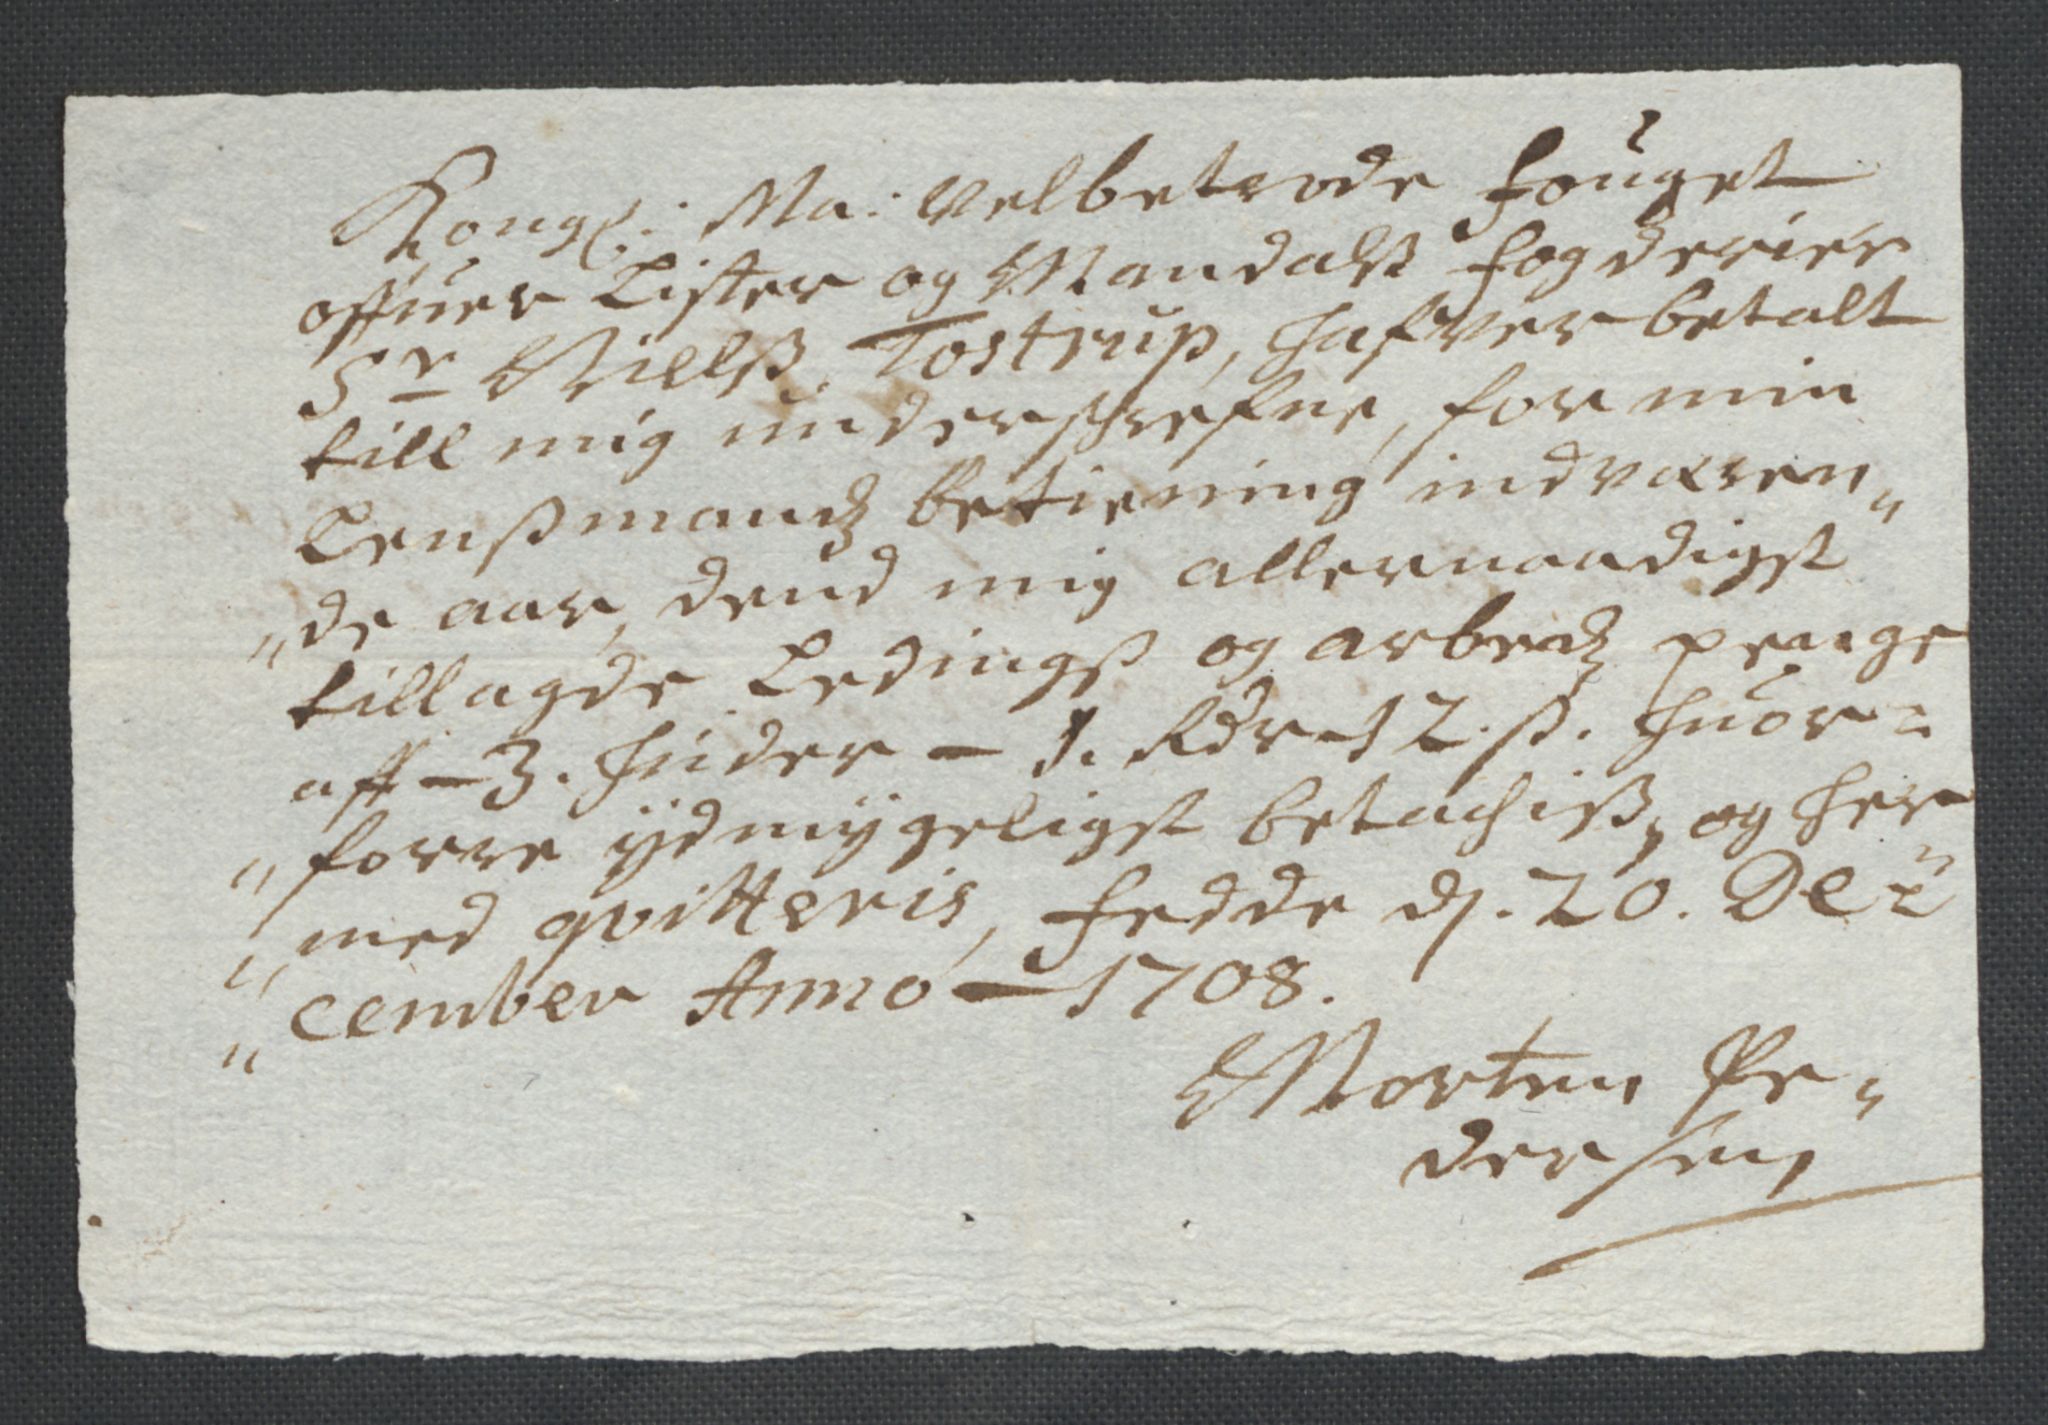 Kongl: Ma: Velbetrode fouget
offuer Lister og Mandalß fogderier
Sr Nielß Tostrup, hafver betalt
till mig underschrefne, for min
Lenßmandz betiening indværen„
„de aar, dend mig allernaadigst
tillagde Ledingß og arbedz penge
aff — 3. huder — 1. Rdr 12. ß. huor=
„forre ÿdmÿgeligst betachiß, og her„
„med qvitteris, Fedde dj. 20. De=
„cember Anno — 1708.
Morten Pe„
dersen